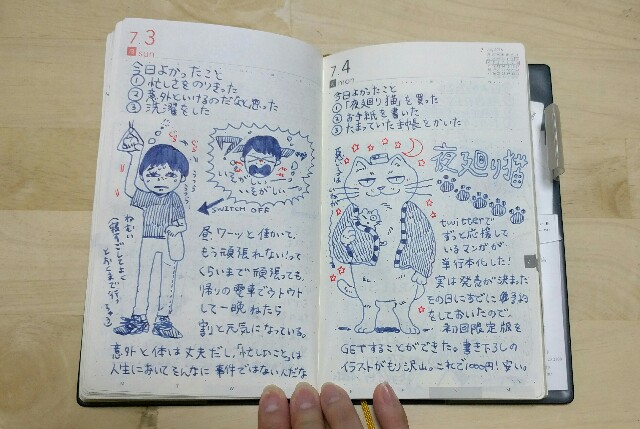 7.3
日 sun
今日よかったこと
① 忙しさをのりきった
② 意外といけるのだなと思った
③ 洗濯をした
いそがしい
いそがしい
SWITCH OFF
ねむい
昼、ワーッと働いて、
もう頑張れない!って
くらいまで頑張っても、
帰りの電車でウトウト
して一晩ねたら
割と元気になっている。
意外と体は丈夫だし、「忙しいこと」は
人生においてそんなに重大事ではないんだな
7.4
mon
今日よかったこと
① 「夜廻り猫」を買った
② お手紙を書いた
③ たまっていた手帳をかいた
夜廻り猫
twitterで
ずっと応援して
いるマンガが
単行本化した!
実は発売が決まった
その日にすでに予約
をしておいたので、
初回限定版を
GETすることができた。書き下ろしの
イラストがもり沢山。これで1000円!安い。